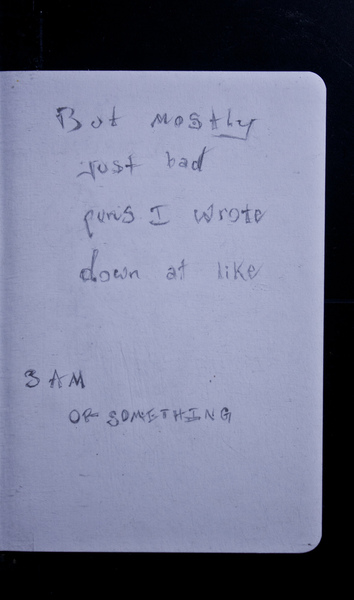 But mostly
just bad
puns I wrote
down at like
3 AM
OR SOMETHING